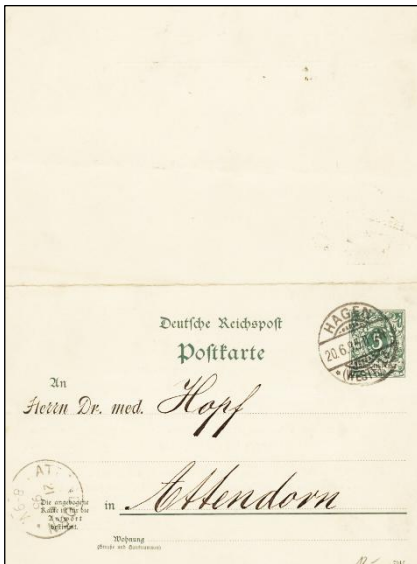 Deutsche Reichspost
Postkarte
HAGEN
20.6.
(WESTF.)
5
An
Herrn Dr. med. Hopf
AT
21
6
Die angebogene
Karte ist für die
Antwort
bestimmt.
in Attendorn
Wohnung
(Straße und Hausnummer)